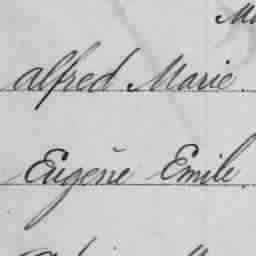 Alfred Marie.
Eugène Emile.